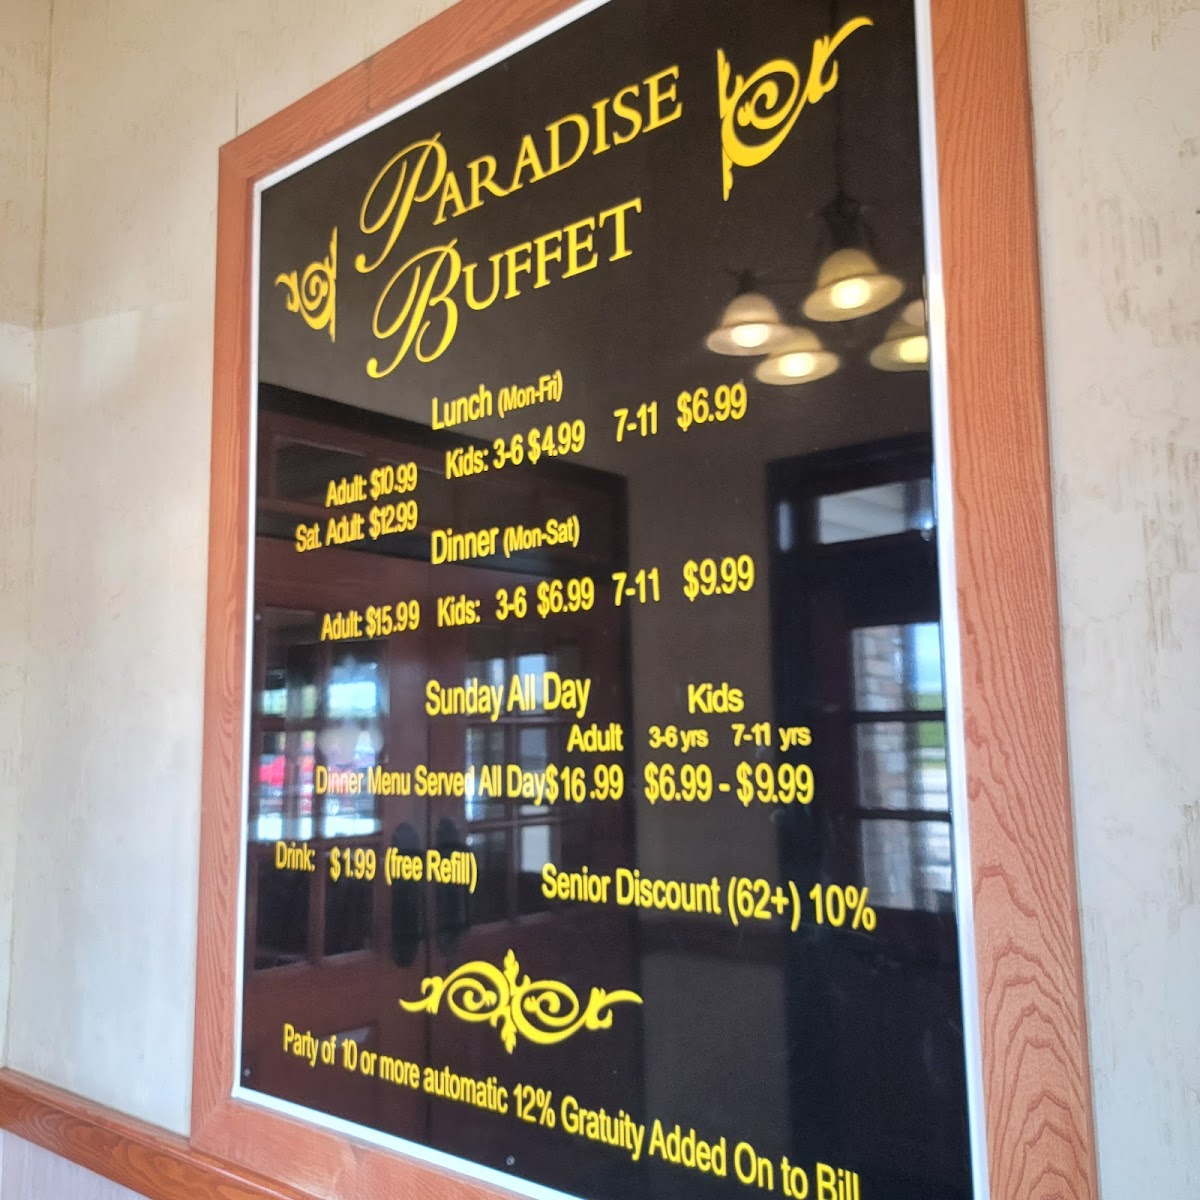 PARADISE
BUFFET
Lunch (Mon-Fri)
Adult: $10.99 Kids: 3-6 $4.99 7-11 $6.99
Sat. Adult: $12.99
Dinner (Mon-Sat)
Adult: $15.99 Kids: 3-6 $6.99 7-11 $9.99
Sunday All Day Kids
Adult 3-6 yrs 7-11 yrs
Dinner Menu Served All Day $16.99 $6.99 - $9.99
Drink: $1.99 (free Refill) Senior Discount (62+) 10%
Party of 10 or more automatic 12% Gratuity Added On to Bill